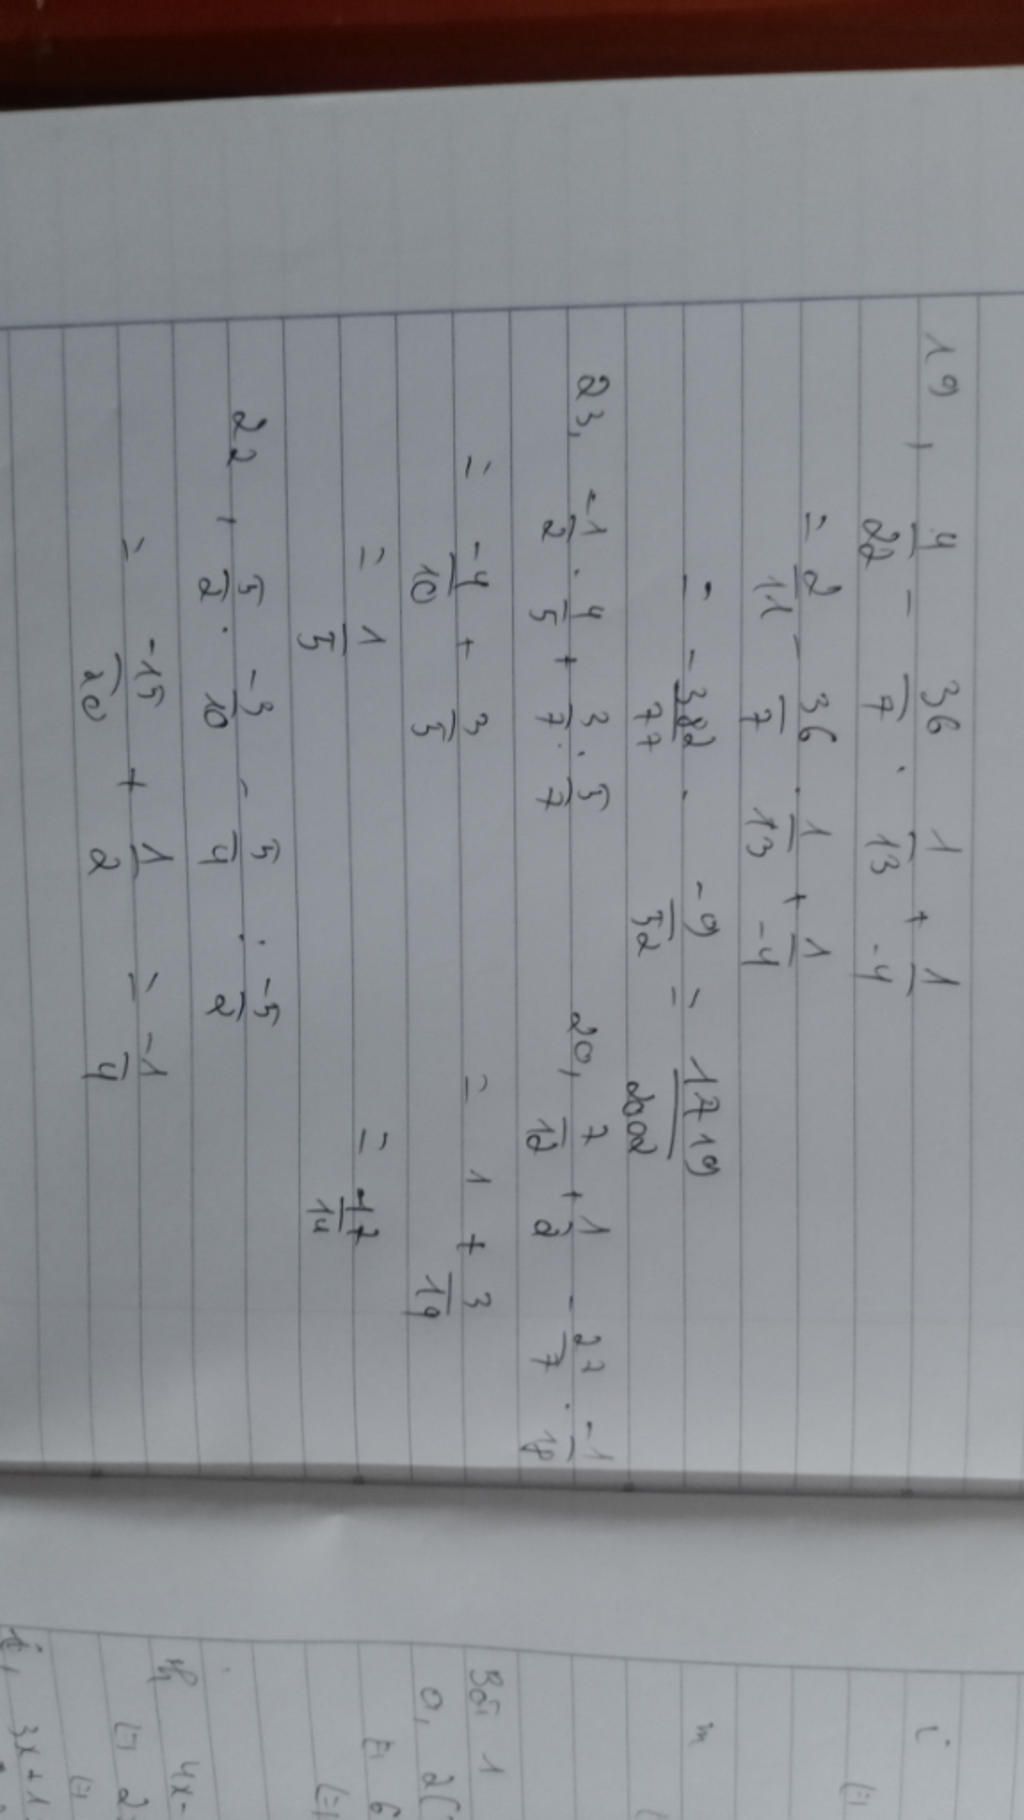 19, 4/22 - 36/7 . 1/13 + 1/-4
= 2/11 - 36/7 . 1/13 + 1/-4
= -382/77 . -9/52 = 1719/2002
23, -1/2 . 4/5 + 3/7 . 5/7
= -4/10 + 3/5
= 1/5
20, 7/12 + 1/2 - 27/7 . -1/18
= 1 + 3/14
= 17/14
22, 5/2 . -3/10 - 5/4 : -5/2
= -15/20 + 1/2 = -1/4
i
m
Bài 1
0, 2(
6
4x-
2
i, 3x+1